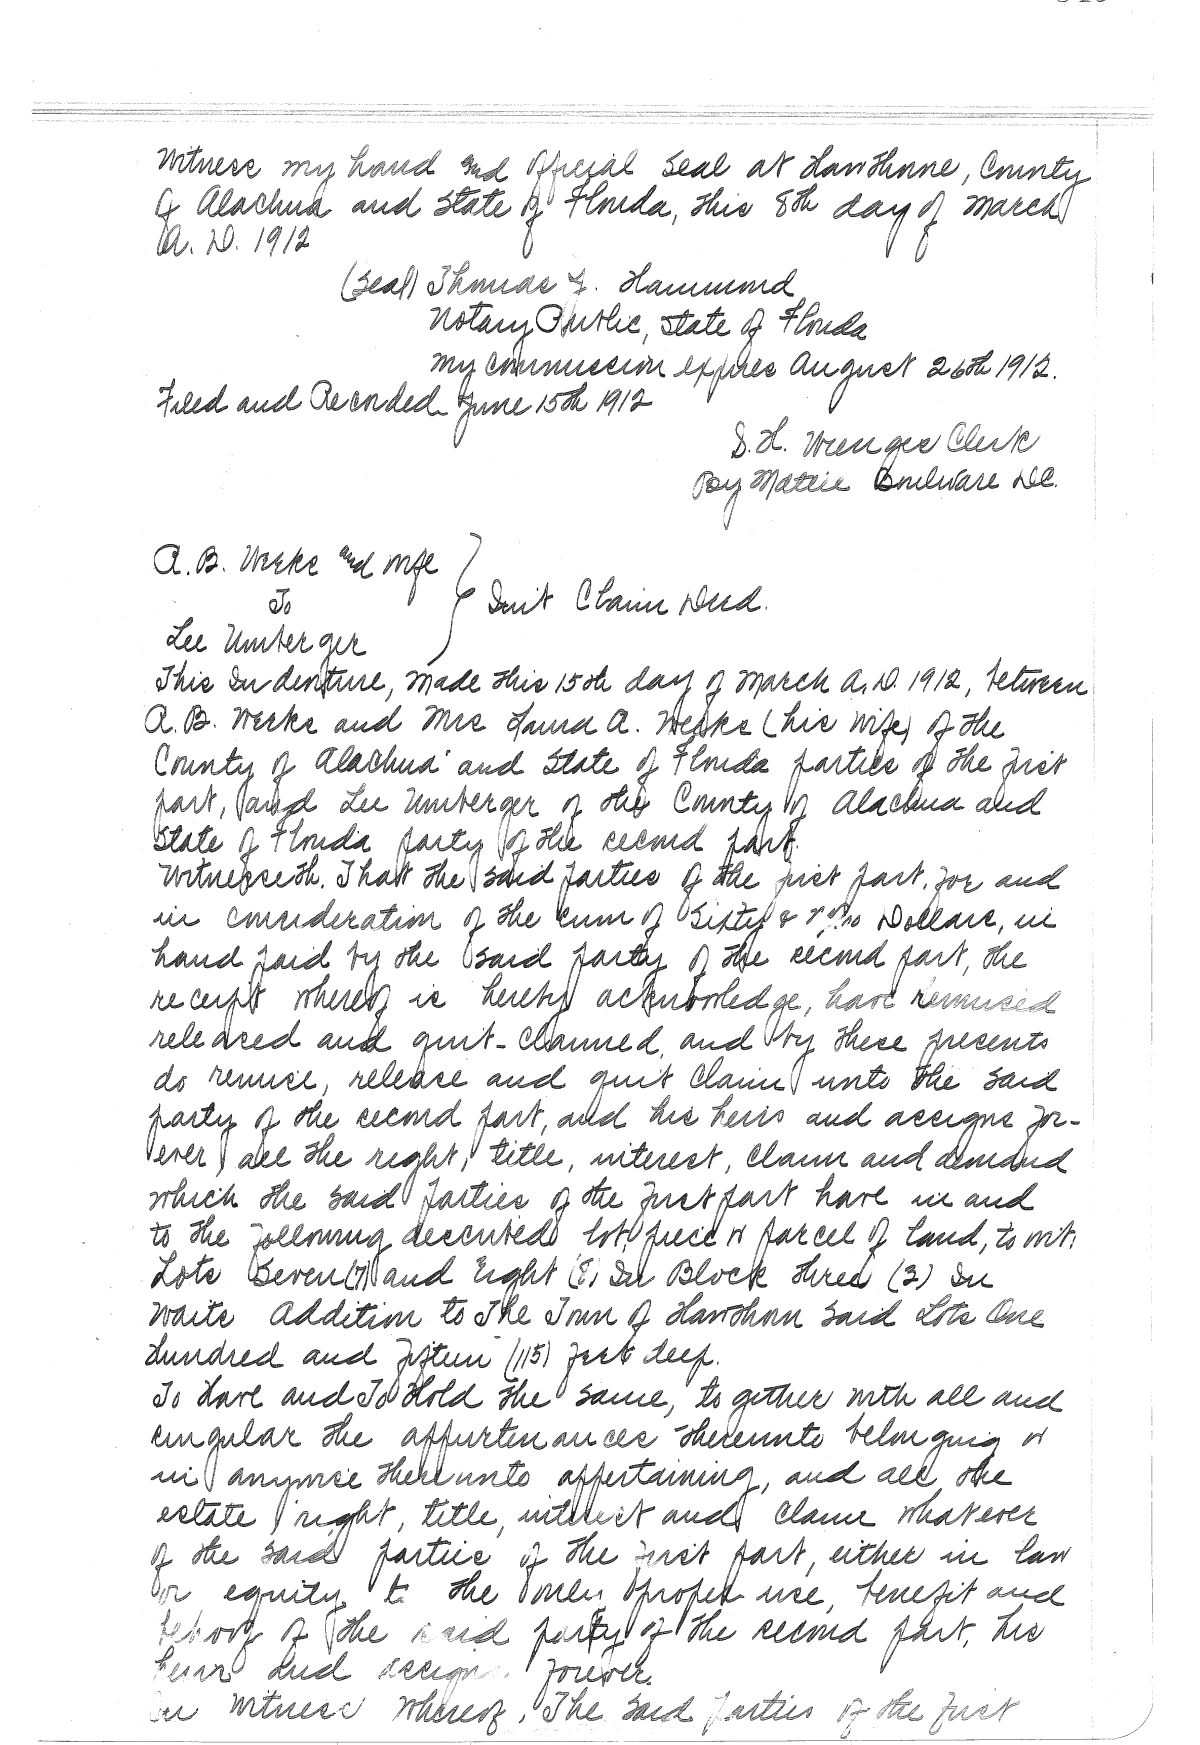 Witness my hand and Official Seal at Hawthorne, County
of Alachua and State of Florida, this 8th day of March
A. D. 1912
(Seal) Thomas J. Hammond
Notary Public, State of Florida
My Commission expires August 26th 1912.
Filed and Recorded June 15th 1912
S. H. Wienges Clerk
By Mattie Boulware D.C.
A. B. Weeks and wife
To
Quit Claim Deed.
Lee Umberger
This Indenture, Made this 15th day of March A. D. 1912, between
A. B. Weeks and Mrs Laura A. Weeks (his wife) of the
County of Alachua and State of Florida parties of the first
part, and Lee Umberger of the County of Alachua and
State of Florida party of the second part.
Witnesseth. That the said parties of the first part, for and
in consideration of the sum of Sixty & no/100 Dollars, in
hand paid by the said party of the second part, the
receipt whereof is hereby acknowledge, have remised
released and quit-claimed, and by these presents
do remise, release and quit claim unto the said
party of the second part, and his heirs and assigns for-
ever all the right, title, interest, claim and demand
which the said parties of the first part have in and
to the following described lot, piece or parcel of land, to wit:
Lots Seven (7) and Eight (8) In Block three (3) In
Waits Addition to The Town of Hawthorn Said Lots One
Hundred and Fifteen (115) feet deep.
To Have and To Hold the same, together with all and
singular the appurtenances thereunto belonging or
in anywise thereunto appertaining, and all the
estate right, title, interest and claim whatever
of the said parties of the first part, either in law
or equity, to the only proper use, benefit and
behoof of the said party of the second part, his
heirs and assigns forever.
In Witness Whereof, The said parties of the first